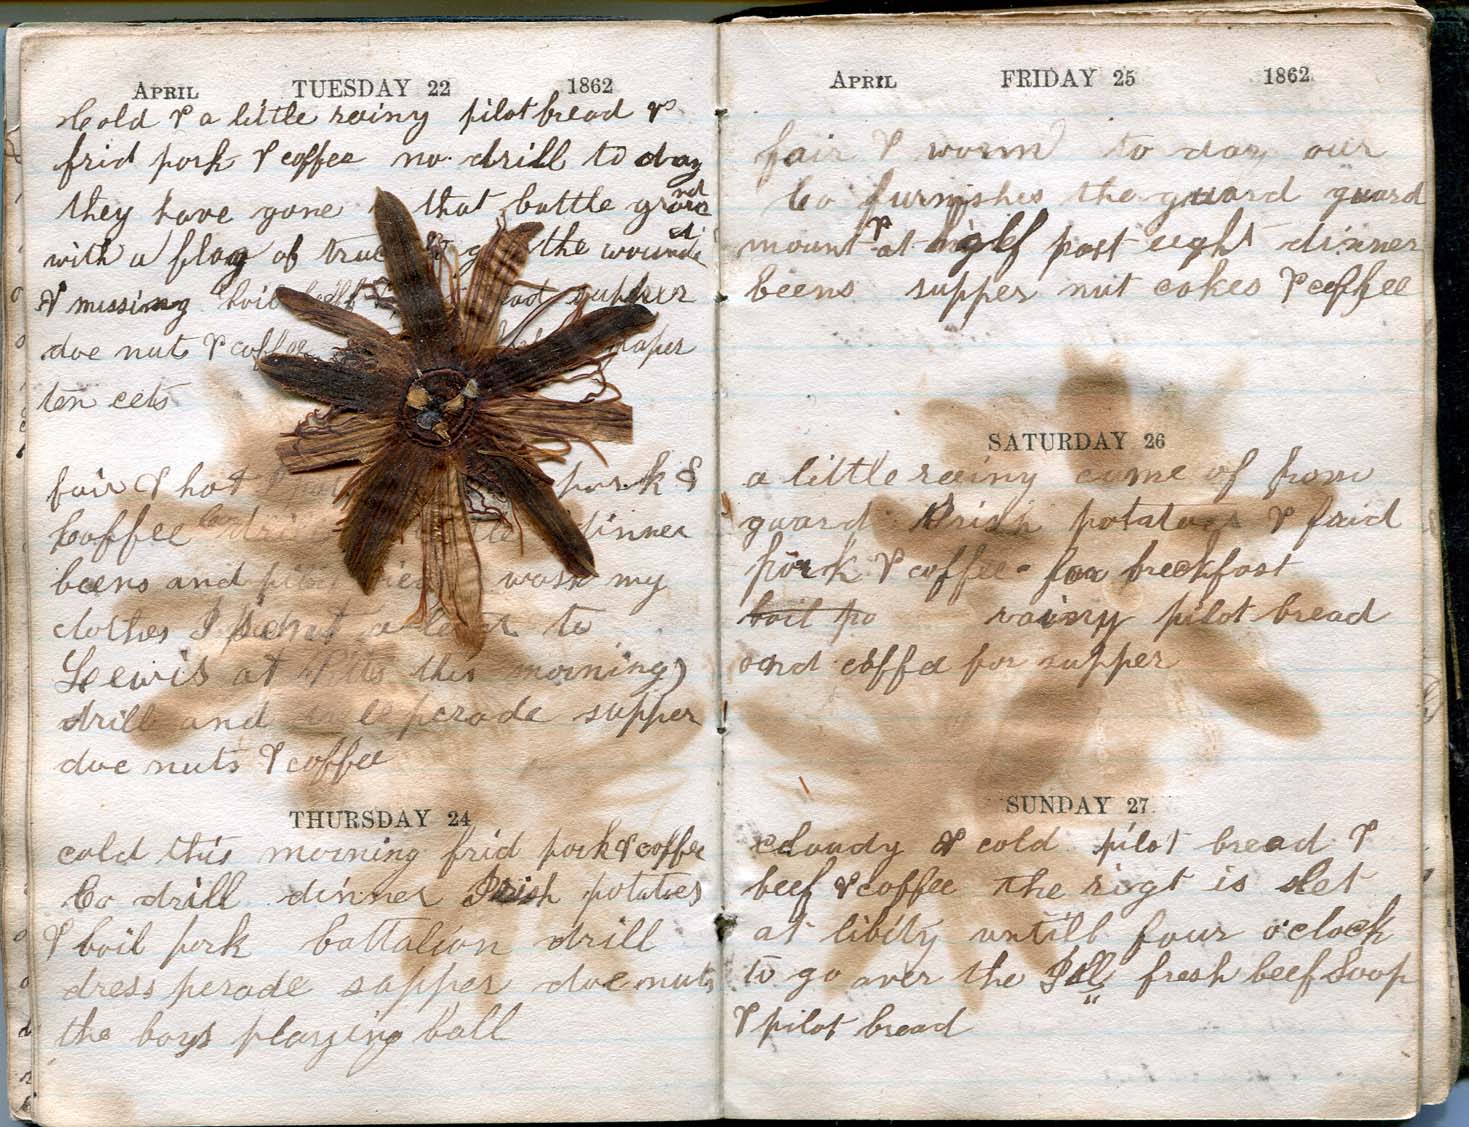 APRIL TUESDAY 22 1862
Cold & a little rainy pilot bread &
frid pork & coffee no drill to day
they have gone that battle ground
with a flag of truc the wounded
& missing supper
doe nuts & coffee paper
ten cets
fair & hot pork &
Coffee dinner
beens and wash my
clothes I a to
Leewis at this morning
drill and perade supper
doe nuts & coffee
THURSDAY 24
cold this morning frid pork & coffee
Co drill dinner Irish potatoes
& boil pork battalion drill
dress perade supper doe nuts
the boys playing ball
APRIL FRIDAY 25 1862
fair & worm to day our
Co furnishes the guard guard
mount at half past eight dinner
beens supper nut cakes & coffee
SATURDAY 26
a little reainy come of from
guard Irish potatoes & fried
pork & coffee for breckfast
boil po rainy pilot bread
and coffee for supper
SUNDAY 27
cloudy & cold pilot bread &
beef & coffee the rigt is let
at libity untill four o'clock
to go over the Ill fresh beef Soop
& pilot bread